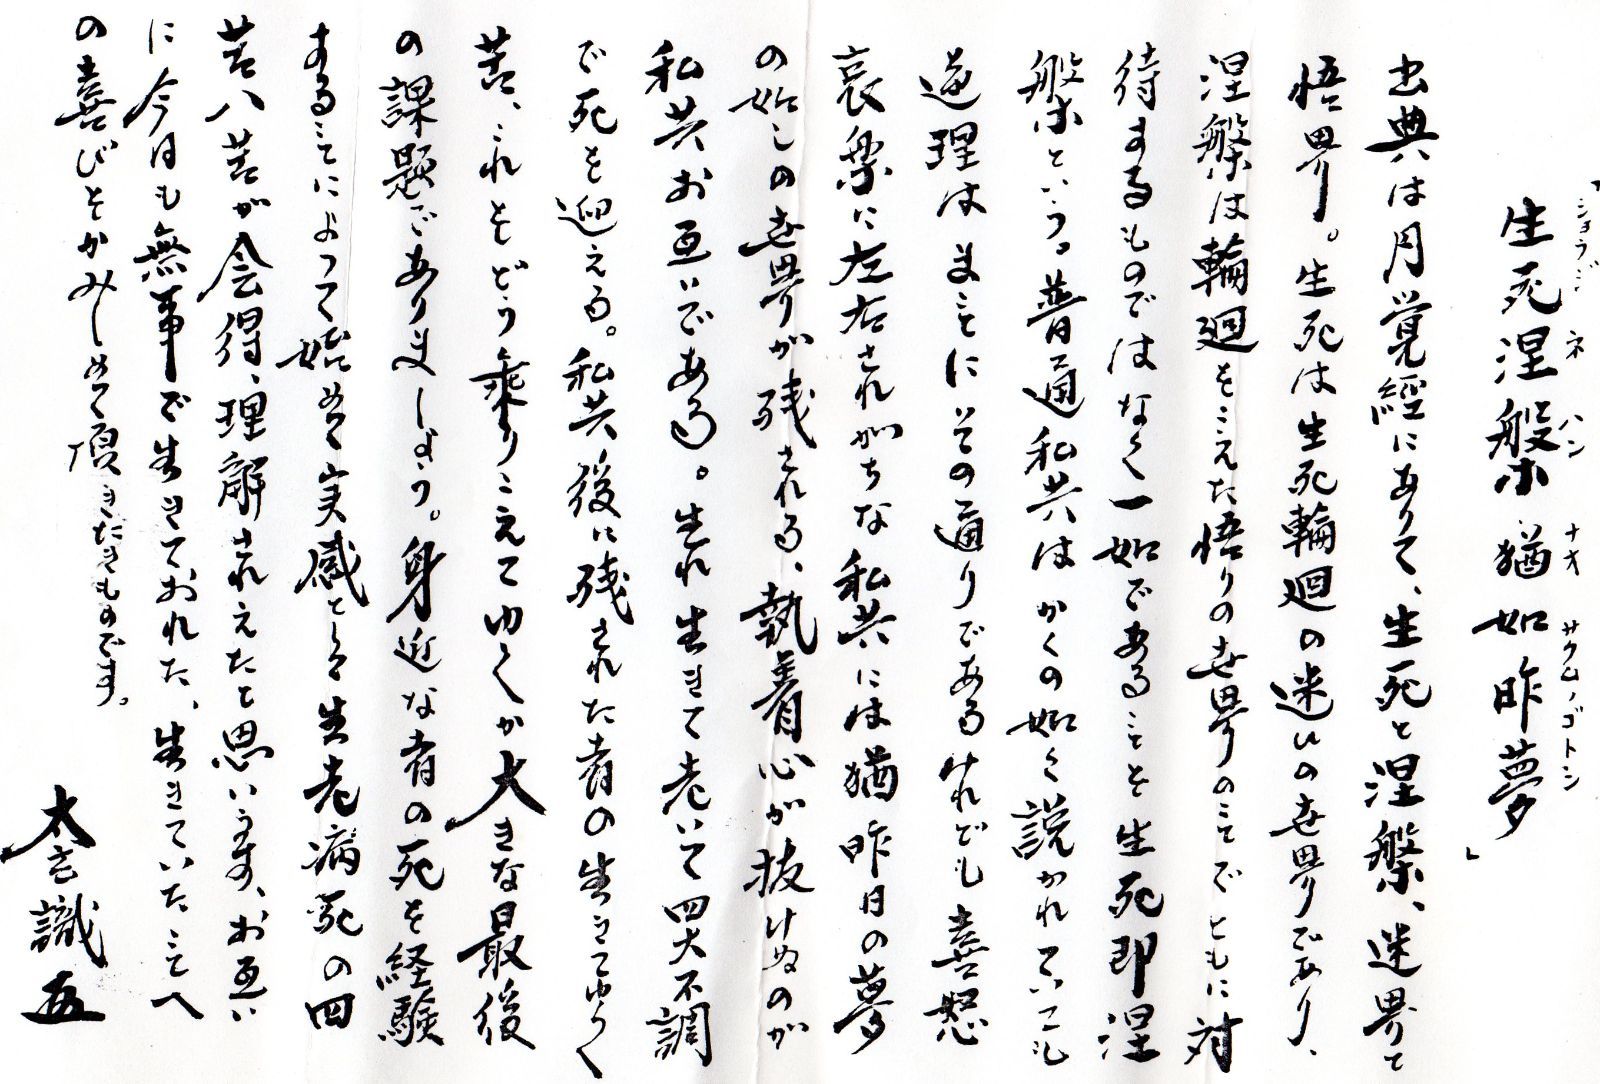 「生死涅槃猶如昨夢」
ショウジ ネ ハン ナオ サクムノゴトシ
出典は円覚経にありて、生死と涅槃、迷界と
悟界。生死は生死輪廻の迷ひの世界であり、
涅槃は輪廻をこえた悟りの世界のことでともに対
待するものではなく一如であることを生死即涅
槃という。普通私共はかくの如く説かれていても
道理はまことにその通りであるけれども喜怒
哀楽に左右されがちな私共には猶昨日の夢
の如しの世界が残される、執着心が抜けぬのが
私共お互いである。生れ生きて老いて四大不調
で死を迎える。私共後に残された者の生きてゆく
苦、これをどう乗りこえてゆくか大きな最後
の課題でありましょう。身近な者の死を経験
することによって始めて実感として生老病死の四
苦八苦が会得、理解されえたと思います、お互い
に今日も無事で生きておれた、生きていたことへ
の喜びをかみしめて頂きたきものです。
太玄識